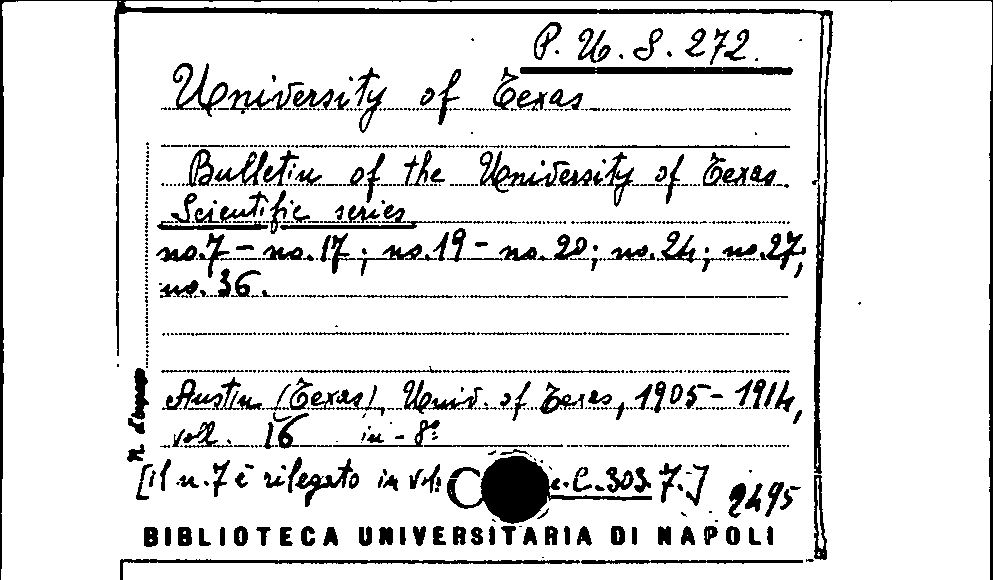 P. U. S. 272.
University of Texas
Bulletin of the University of Texas.
Scientific series
no. 7 - no. 17; no. 19 - no. 20; no. 24; no. 27;
no. 36.
Austin (Texas), Univ. of Texas, 1905-1914,
voll. 16 in-8°
[il n. 7 è rilegato in vol: C. 303. 7.]
2495
n. d'ingresso
BIBLIOTECA UNIVERSITARIA DI NAPOLI